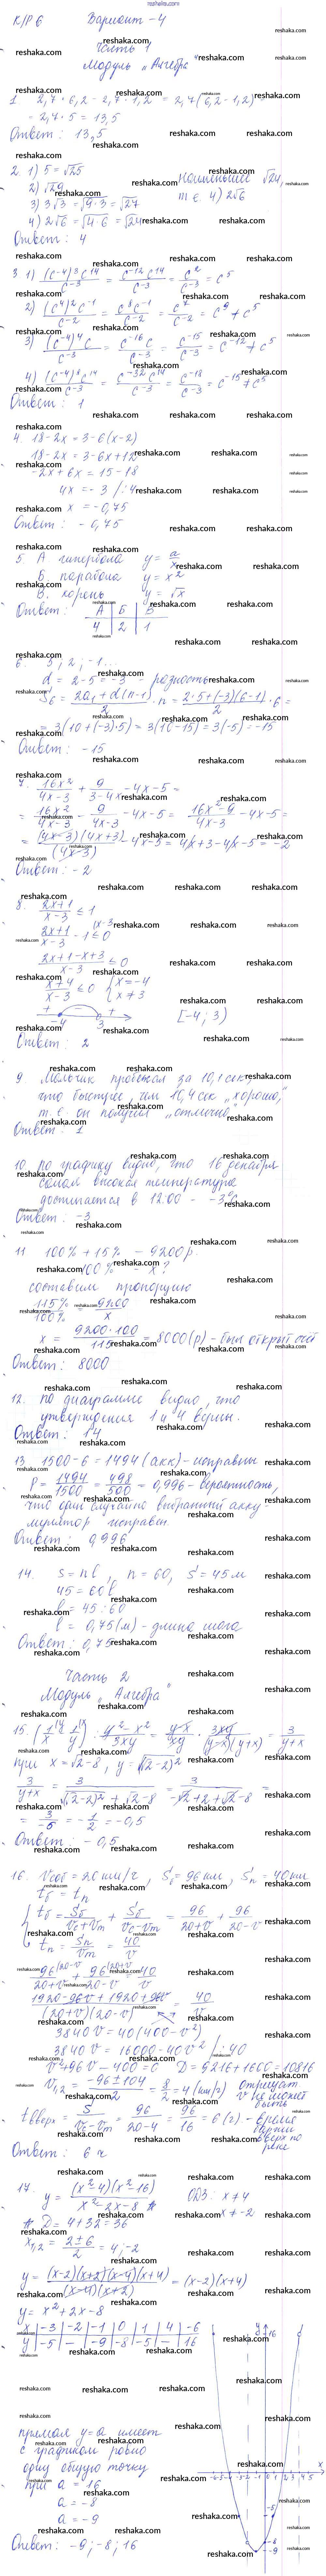 К/Р 6 Вариант - 4
Часть 1
Модуль "Алгебра"
1. 2,7 · 6,2 - 2,7 · 1,2 = 2,7 (6,2 - 1,2) =
= 2,7 · 5 = 13,5
Ответ: 13,5
2. 1) 5 = √25
2) √29
3) 3√3 = √(9·3) = √27
наименьшее √24,
т.е. 4) 2√6
4) 2√6 = √(4·6) = √24
Ответ: 4
3. 1) (c⁻⁴)³c¹⁴/c⁻³ = c⁻¹²c¹⁴/c⁻³ = c²/c⁻³ = c⁵
2) (c⁴)²c⁻¹/c⁻² = c⁸c⁻¹/c⁻² = c⁷/c⁻² = c⁹ ≠ c⁵
3) (c⁻⁴)⁴c/c⁻³ = c⁻¹⁶c/c⁻³ = c⁻¹⁵/c⁻³ = c⁻¹² ≠ c⁵
4) (c⁻⁴)⁸c¹⁴/c⁻³ = c⁻³²c¹⁴/c⁻³ = c⁻¹⁸/c⁻³ = c⁻¹⁵ ≠ c⁵
Ответ: 1
4. 18 - 2x = 3 - 6(x-2)
18 - 2x = 3 - 6x + 12
-2x + 6x = 15 - 18
4x = -3 /:4
x = -0,75
Ответ: -0,75
5. А гипербола y = a/x
Б. парабола y = x²
В. корень y = √x
Ответ: А | Б | В
4 | 2 | 1
6. 5; 2; -1...
d = 2-5 = -3 - разность
S₆ = (2a₁ + d(n-1))/2 · n = (2·5+(-3)(6-1))/2 · 6 =
= 3(10+(-3)·5) = 3(10-15) = 3(-5) = -15
Ответ: -15
7. 16x²/(4x-3) + 9/(3-4x) - 4x - 5 =
= 16x²/(4x-3) - 9/(4x-3) - 4x - 5 = (16x²-9)/(4x-3) - 4x - 5 =
= (4x-3)(4x+3)/(4x-3) - 4x - 5 = 4x + 3 - 4x - 5 = -2
Ответ: -2
8. (2x+1)/(x-3) ≤ 1
(2x+1)/(x-3) - 1 ≤ 0
(2x+1-x+3)/(x-3) ≤ 0
(x+4)/(x-3) ≤ 0 { x = -4
x ≠ 3
+ - +
-4 3 x [-4; 3)
Ответ: 2
9 Мальчик пробежал за 10,1 сек,
что быстрее, чем 10,4 сек "хорошо,"
т.е. он получил "отлично,"
Ответ: 1
10. по графику видно, что 16 декабря
самая высокая температура
достигается в 12:00 - -3°C
Ответ: -3
11. 100% + 15% - 9200 р.
100% - x?
составим пропорцию
115%/100% = 9200/x
x = 9200·100/115 = 8000 (р) - был открыт счёт
Ответ: 8000
12. по диаграмме видно, что
утверждения 1 и 4 верны.
Ответ: 14
13. 1500 - 6 = 1494 (акк) - исправны
P = 1494/1500 = 498/500 = 0,996 - вероятность,
что один случайно выбранный акку-
мулятор исправен.
Ответ: 0,996
14. s = nl, n = 60, S = 45 м
45 = 60l
l = 45 : 60
l = 0,75 (м) - длина шага
Ответ: 0,75
Часть 2
Модуль "Алгебра"
15. (1/x - 1/y) : (y²-x²)/3xy = (y-x)/xy · 3xy/((y-x)(y+x)) = 3/(y+x)
при x = √2 - 8, y = √(√2-2)²
3/(y+x) = 3/(√(√2-2)² + √2 - 8) = 3/(-√2+2+√2-8) =
= 3/-6 = -1/2 = -0,5
Ответ: -0,5
16. Vсоб = 20 км/ч, Sб = 96 км, Sп = 40 км
tб = tп
{ tб = Sб/(Vc+Vт) + Sб/(Vc-Vт) = 96/(20+v) + 96/(20-v)
tп = Sп/Vт = 40/v
96/(20+v) + 96/(20-v) = 40/v
(1920-96v+1920+96v)/((20+v)(20-v)) = 40/v
3840v = 40(400-v²)
3840v = 16000 - 40v² /:40
v² + 96v - 400 = 0 D = 9216 + 1600 = 10816
v₁,₂ = (-96±104)/2 = 8/2 = 4 (км/ч) отрицат
v не может
быть
tвверх = S/(Vc-Vт) = 96/(20-4) = 96/16 = 6 (ч) - время
вверх по
реке
Ответ: 6 ч
17. y = (x²-4)(x²-16)/(x²-2x-8) ОДЗ: x ≠ 4
x ≠ -2
D = 4 + 32 = 36
x₁,₂ = (2±6)/2 = 4; -2
y = (x-2)(x+2)(x-4)(x+4)/((x-4)(x+2)) = (x-2)(x+4)
y = x² + 2x - 8
x | -3 | -2 | -1 | 0 | 1 | 4 | -6
y | -5 | - | -9 | -8 | -5 | - | 16
прямая y = a имеет
с графиком ровно
одну общую точку
при a = 16
a = -8
a = -9
Ответ: -9; -8; 16